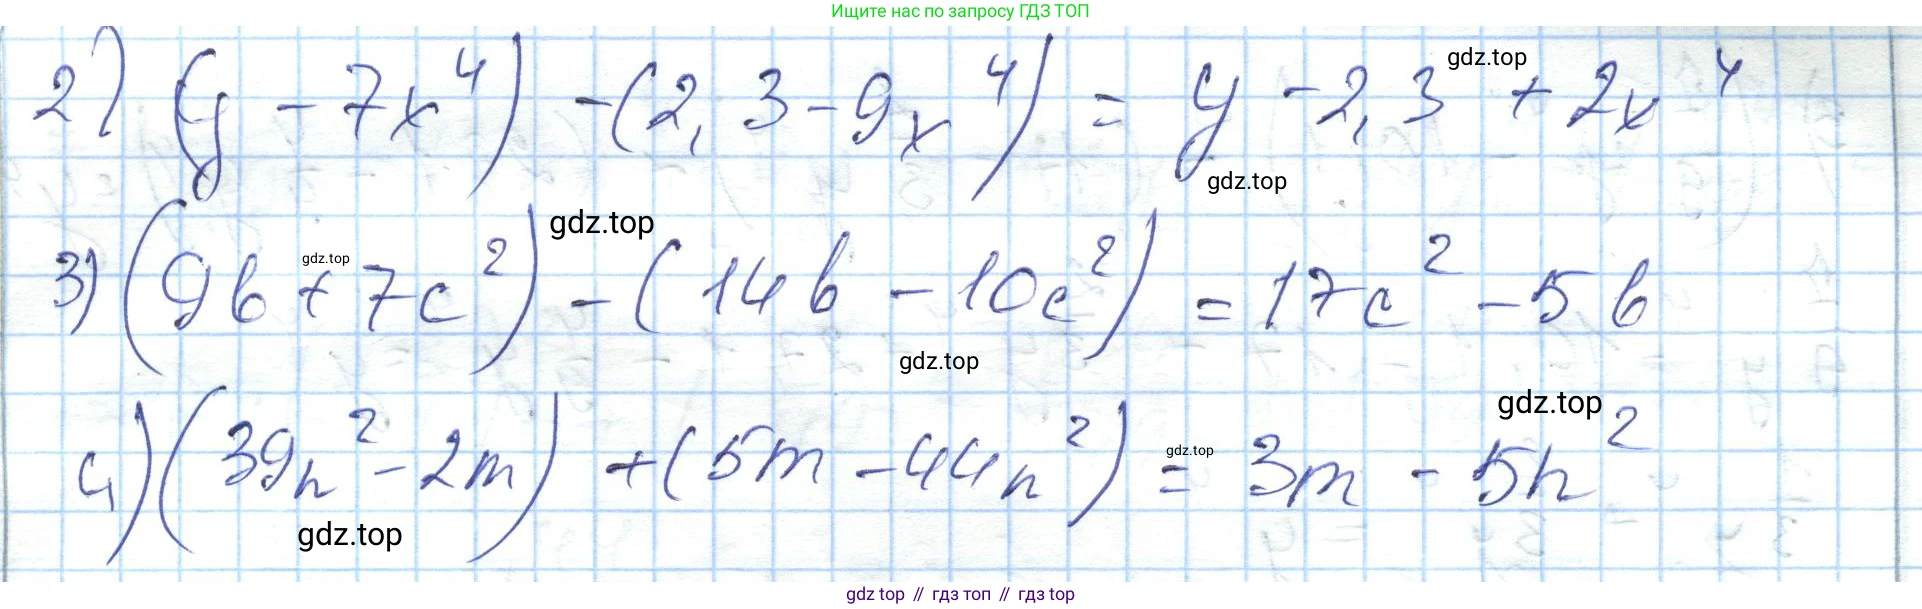 Ищите нас по запросу ГДЗ ТОП
gdz.top
2) (y - 7x⁴) - (2,3 - 9x⁴) = y - 2,3 + 2x⁴
gdz.top
gdz.top
gdz.top
3) (9b + 7c²) - (14b - 10c²) = 17c² - 5b
gdz.top
gdz.top
gdz.top
4) (39n² - 2m) + (5m - 44n²) = 3m - 5n²
gdz.top
gdz.top // гдз топ // гдз top